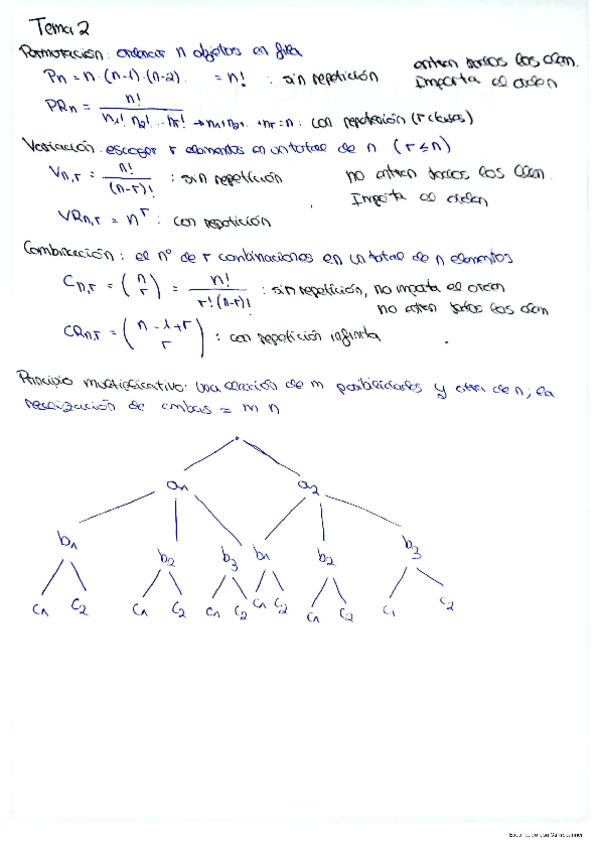 Tema 2
Permutación: ordenar n objetos en fila
Pn = n · (n-1) · (n-2) . = n! : sin repetición
entran todos los elem.
Importa el orden
PRn = n! / n1! n2! ... nr! → n1+n2+ .. +nr = n : con repetición (r clases)
Variación: escoger r elementos en un total de n (r ≤ n)
Vn,r = n! / (n-r)! : sin repetición
no entran todos los elem.
Importa el orden
VRn,r = n^r : con repetición
Combinación: el nº de r combinaciones en un total de n elementos
Cn,r = (n r) = n! / r!(n-r)! : sin repetición, no importa el orden
no entran todos los elem
CRn,r = (n-1+r r) : con repetición infinita
Principio multiplicativo: una elección de m posibilidades y otra de n; la
realización de ambas = m n
a1 a2
b1 b2 b3 b1 b2 b3
c1 c2 c1 c2 c1 c2 c1 c2 c1 c2 c1 c2